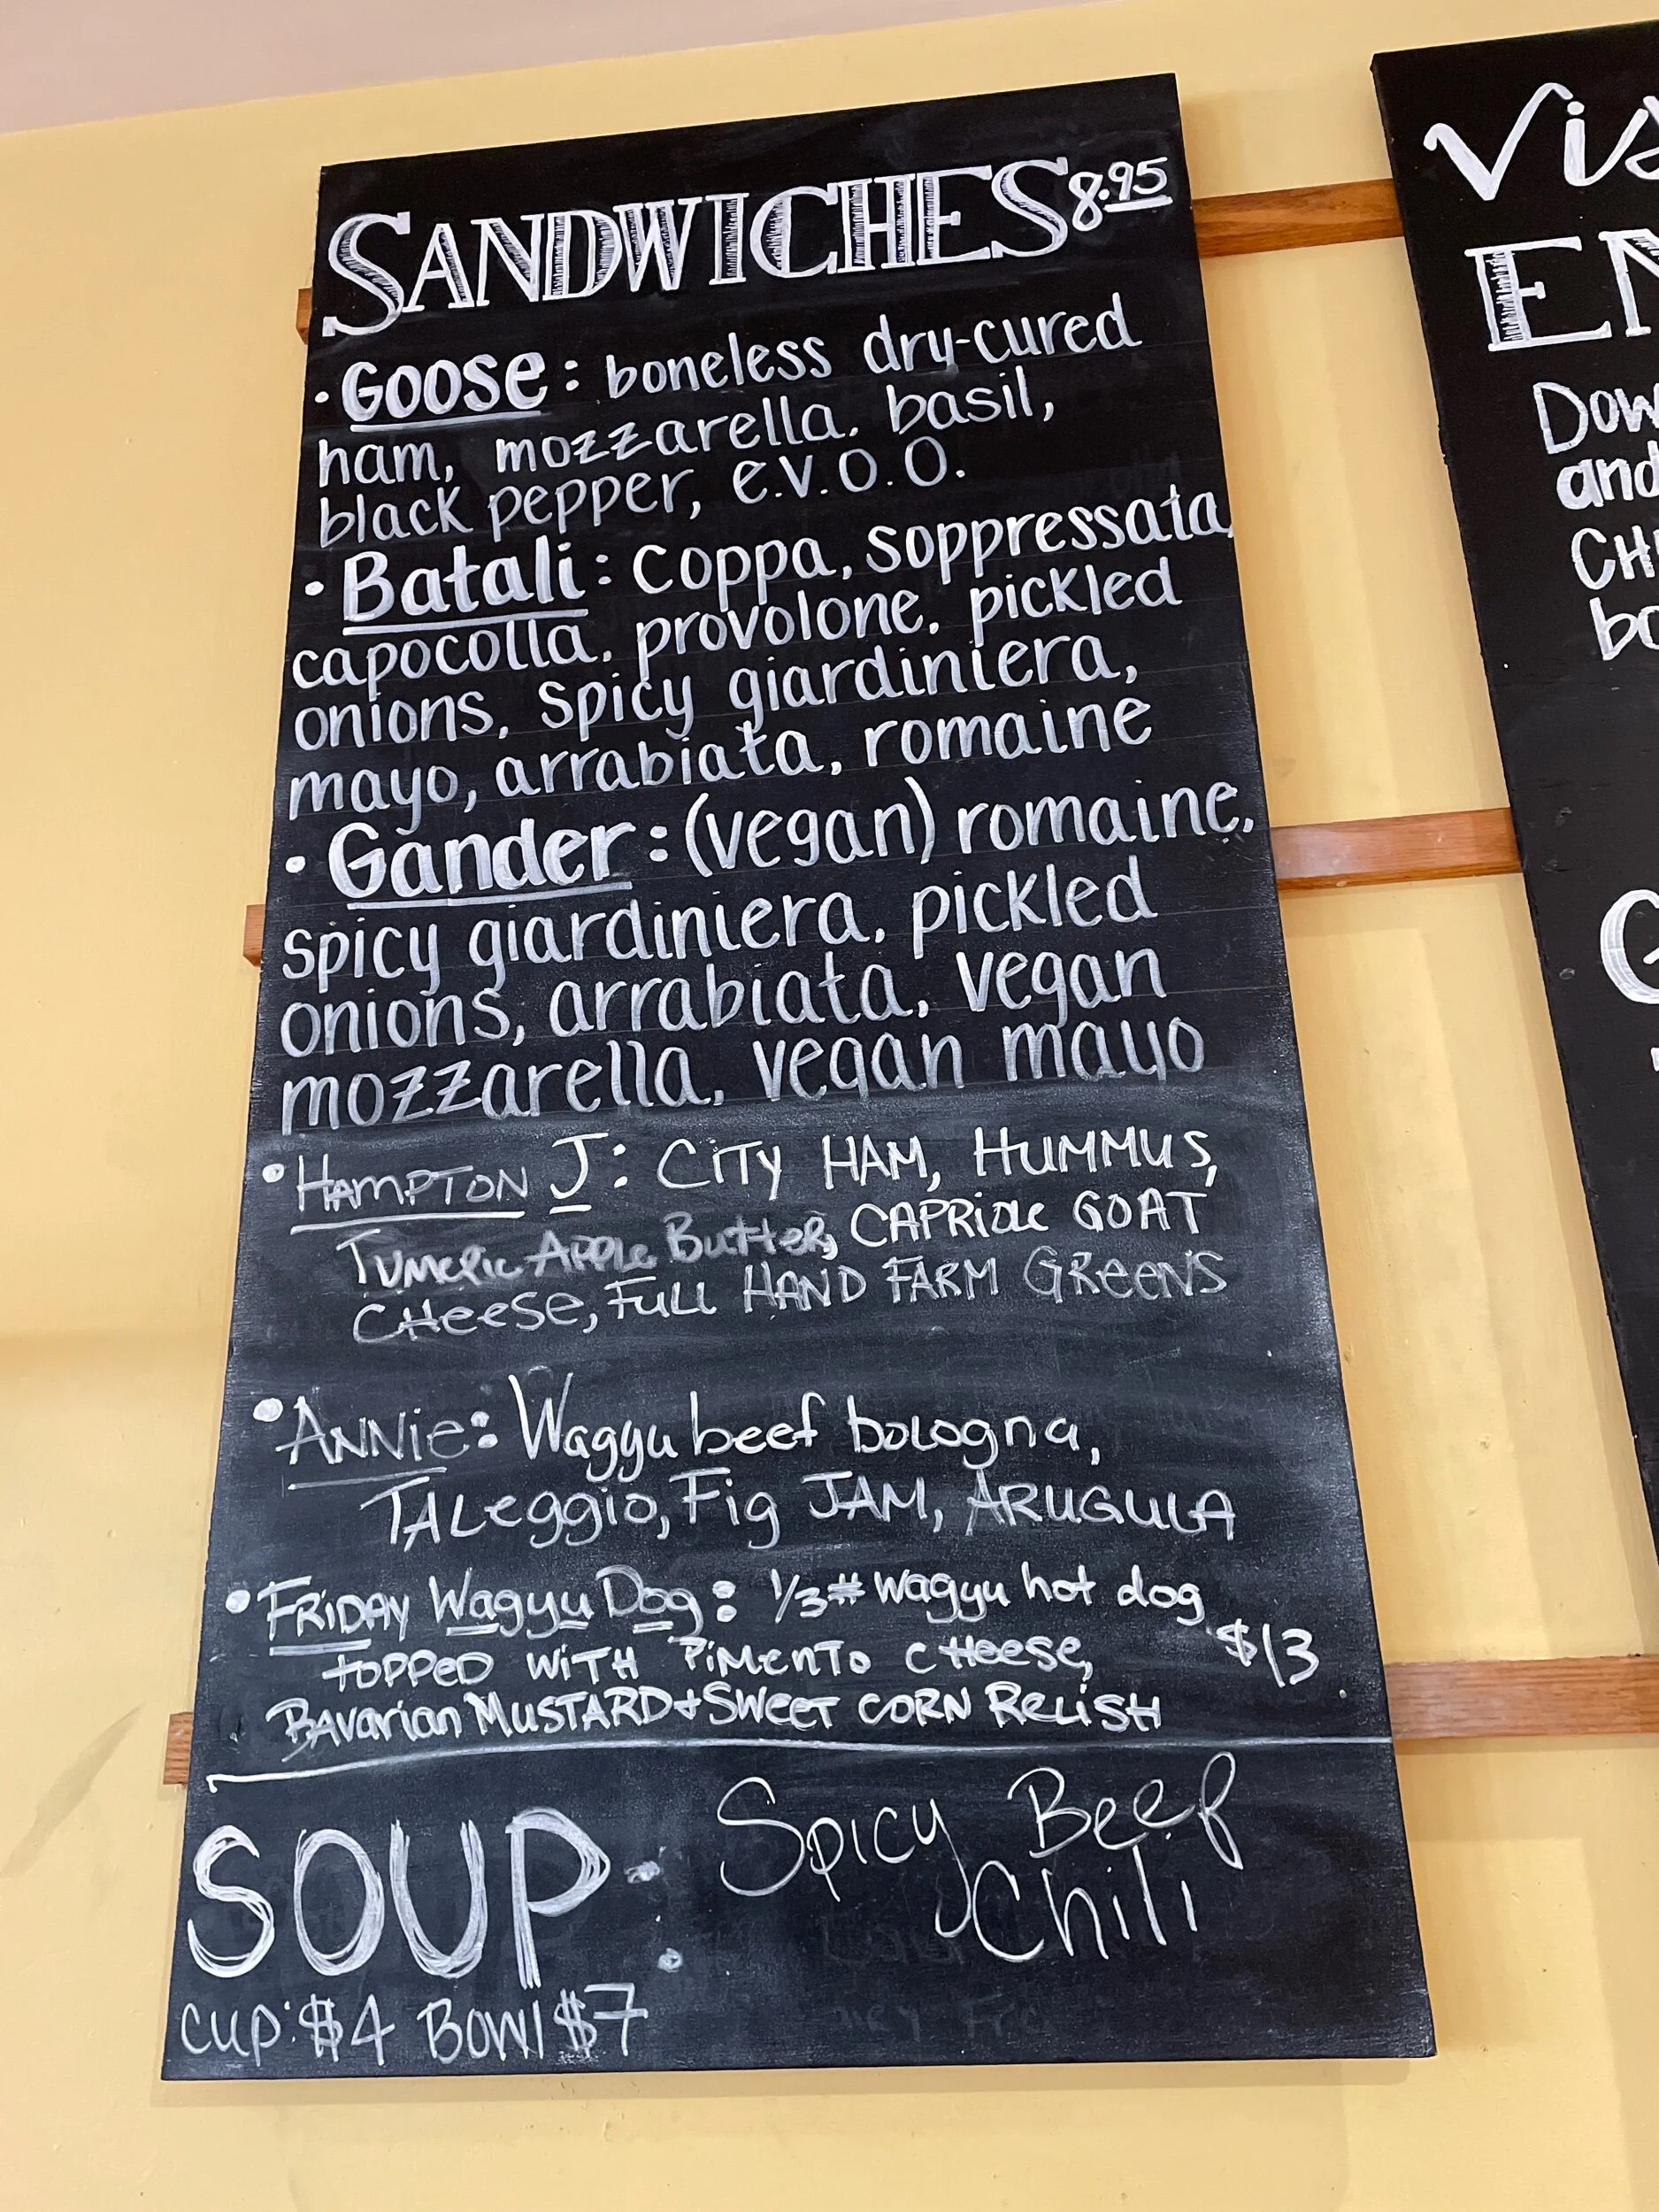 SANDWICHES 8.95
• Goose: boneless dry-cured
ham, mozzarella, basil,
black pepper, e.v.o.o.
• Batali: coppa, soppressata,
capocolla, provolone, pickled
onions, spicy giardiniera,
mayo, arrabiata, romaine
• Gander: (vegan) romaine,
spicy giardiniera, pickled
onions, arrabiata, vegan
mozzarella, vegan mayo
• HAMPTON J: CITY HAM, HUMMUS,
TUMERIC APPLE BUTTER, CAPRIOLE GOAT
CHEESE, FULL HAND FARM GREENS
• ANNIE: Wagyu beef bologna,
TALeggio, Fig JAM, ARUGULA
• FRIDAY Wagyu Dog: 1/3# Wagyu hot dog
TOPPED WITH PIMENTO CHEESE, $13
BAVarian MUSTARD + SWEET CORN RELISH
SOUP: Spicy Beef
Chili
cup: $4 Bowl $7
Vis
EN
Dow
and
CH
bo
G